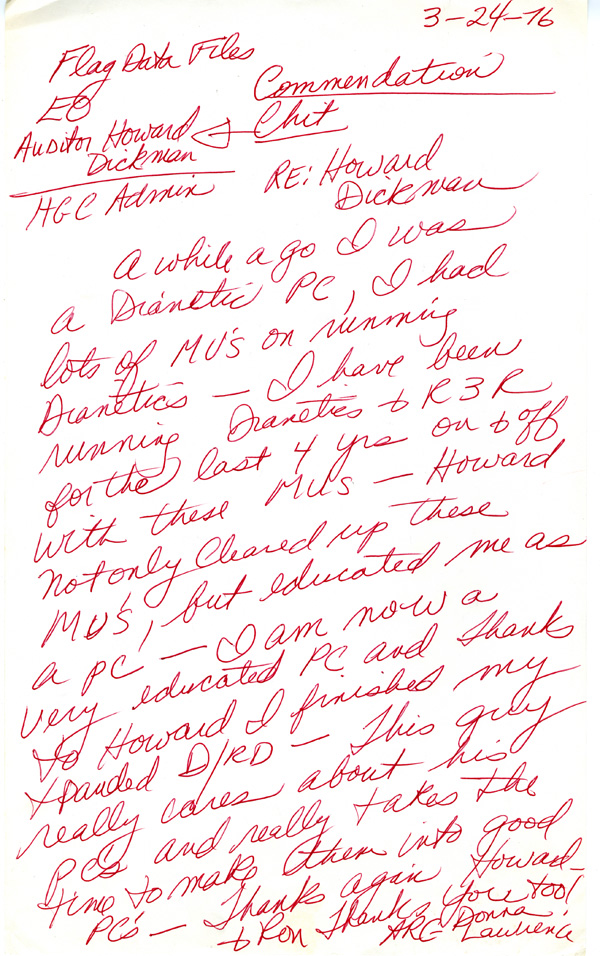 3-24-76
Flag Data Files
EO
Auditor Howard
Dickman
HGC Admin
Commendation
Chit
RE: Howard
Dickman
A while ago I was
a Dianetic PC, I had
lots of MU's on running
Dianetics — I have been
running Dianetics & R3R
for the last 4 yrs on & off
with these MUS — Howard
not only cleared up these
MU'S, but educated me as
a pc — I am now a
very educated PC and thanks
to Howard I finished my
xpanded D/RD — This guy
really cares about his
PCs and really takes the
time to make them into good
PC's — Thanks again Howard—
& Ron Thanks you too!
ARC Donna
Lawrence